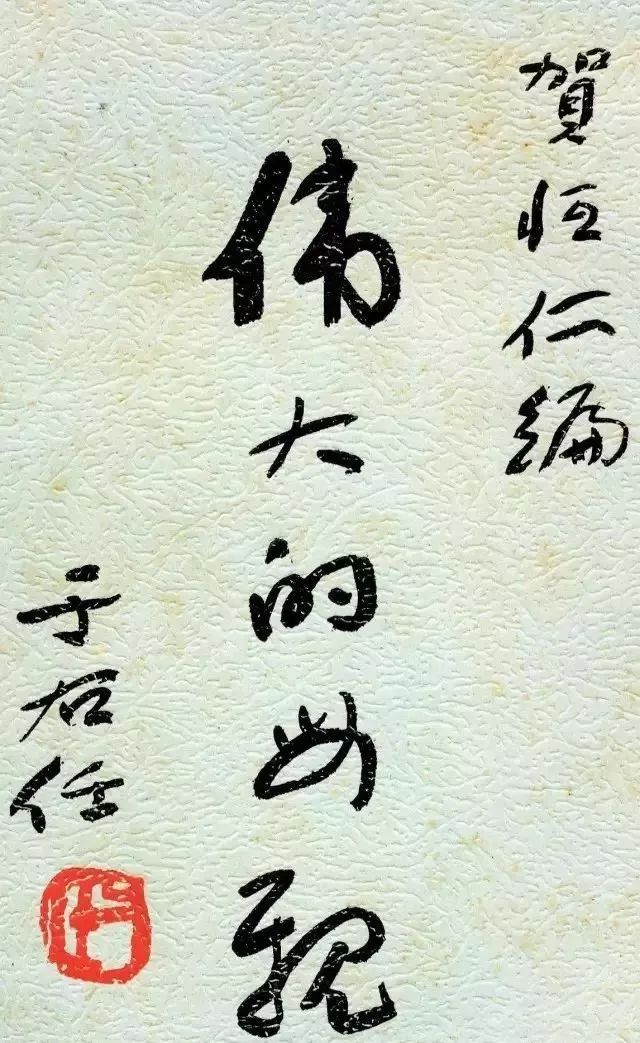 賀恒仁編
偉大的母親
于右任
右任